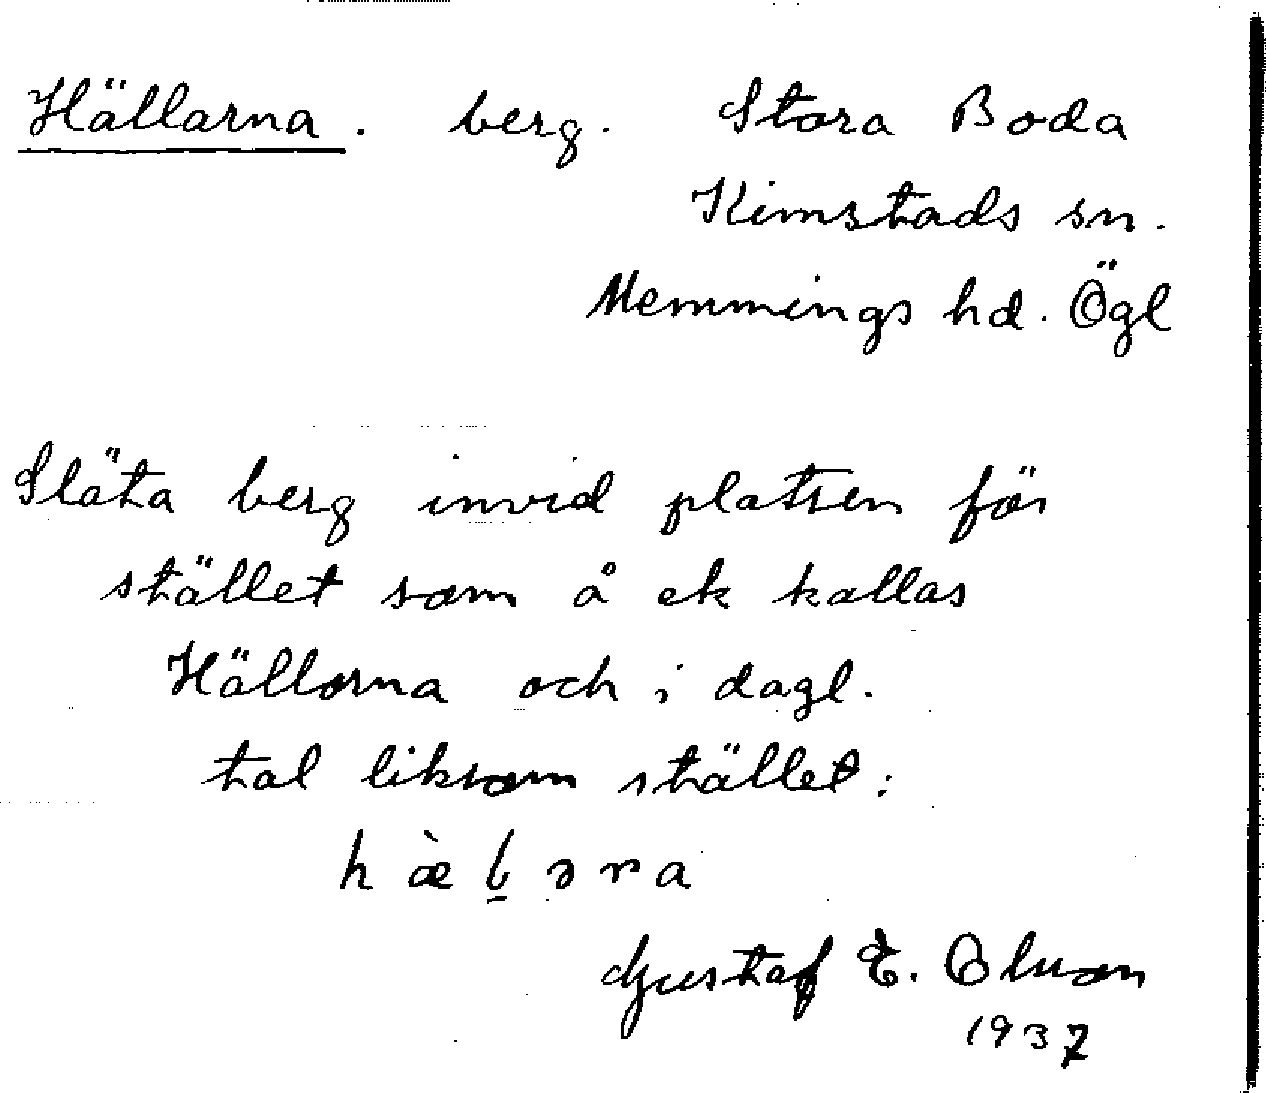 Hällarna. berg. Stora Boda
Kimstads sn.
Memmings hd. Ögl
Släta berg invid platsen för
stället som å ek kallas
Hällarna och i dagl.
tal liksom stället:
h æ̀ l̠ ə r a
Gustaf E. Olson
1937